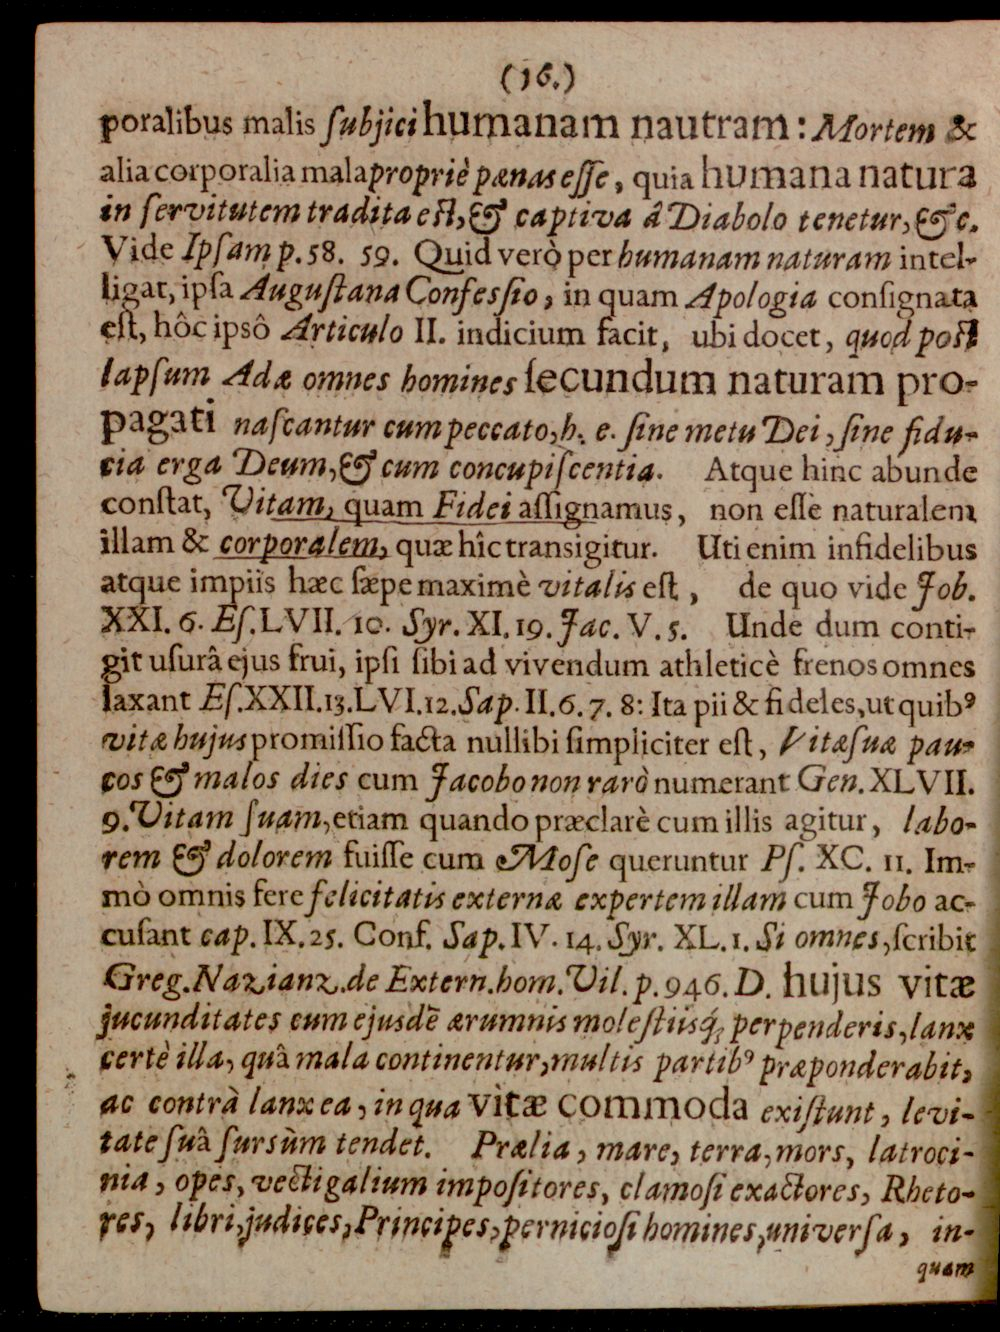 (16.)
poralibus malis ſubjici humanam nautram: Mortem &
alia corporalia mala propriè pænas eſſe, quia humana natura
in ſervitutem tradita eſt, & captiva â Diabolo tenetur, &c.
Vide Ipſam p. 58. 59. Quid verò per humanam naturam intel-
ligat, ipſa Auguſtana Confesſio, in quam Apologia conſignata
eſt, hôc ipsô Articulo II. indicium facit, ubi docet, quod poſt
lapſum Adæ omnes homines ſecundum naturam pro-
pagati naſcantur cum peccato, h. e. ſine metu Dei, ſine fidu-
cia erga Deum, & cum concupiſcentia. Atque hinc abunde
conſtat, Vitam, quam Fidei aſſignamus, non eſſe naturalem
illam & corporalem, quæ hîc transigitur. Uti enim infidelibus
atque impiis hæc ſæpe maximè vitalis eſt, de quo vide Job.
XXI. 6. Eſ. LVII. 10. Syr. XI. 19. Jac. V. 5. Unde dum conti-
git uſurâ ejus frui, ipſi ſibi ad vivendum athleticè frenos omnes
laxant Eſ. XXII. 13. LVI. 12. Sap. II. 6. 7. 8: Ita pii & fideles, ut quibꝰ
vitæ hujus promiſſio facta nullibi ſimpliciter eſt, Vitæ ſuæ pau-
cos & malos dies cum Jacobo non rarò numerant Gen. XLVII.
9. Vitam ſuam, etiam quando præclarè cum illis agitur, labo-
rem & dolorem fuiſſe cum Moſe queruntur Pſ. XC. 11. Im-
mò omnis fere felicitatis externæ expertem illam cum Jobo ac-
cuſant cap. IX. 25. Conf. Sap. IV. 14. Syr. XL. 1. Si omnes, ſcribit
Greg. Nazianz. de Extern. hom. Vil. p. 946. D. hujus vitæ
jucunditates cum ejusdē ærumnis moleſtiisq́; perpenderis, lanx
certè illa, quâ mala continentur, multis partibꝰ præponderabit,
ac contrà lanx ea, in qua vitæ commoda exiſtunt, levi-
tate ſuâ ſursùm tendet. Prælia, mare, terra, mors, latroci-
nia, opes, vectigalium impoſitores, clamoſi exactores, Rheto-
res, libri, judices, Principes, pernicioſi homines, univerſa, in-
quam